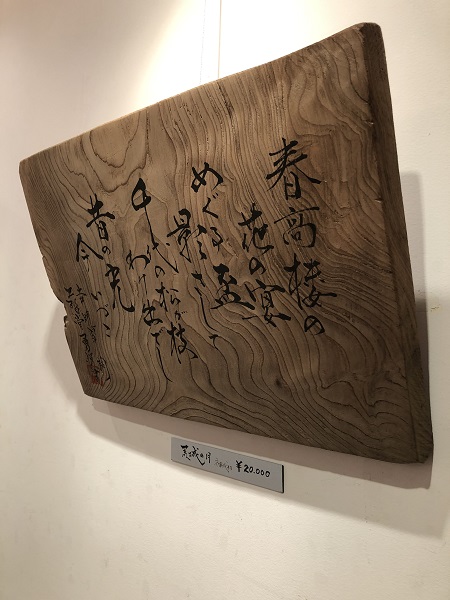 春高楼の
花の宴
めぐる盃
影さして
千代の松が枝
わけ出でし
昔の光
今いづこ
荒城の月
¥20.000